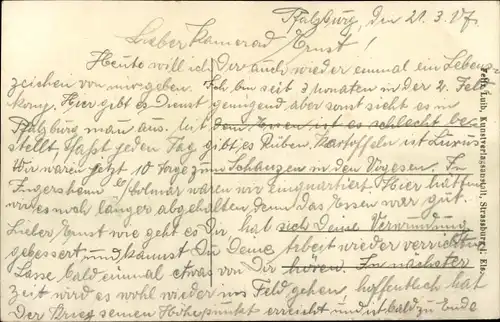 Pfalzburg, den 21.3.17.
Lieber Kamerad Ernst!
Heute will ich Dir auch wieder einmal ein Lebens=
zeichen von mir geben. Ich bin seit 3 Monaten in der 2. Feld
komp. Hier gibt es Dienst genügend aber sonst sieht es in
Pfalzburg mau aus. Mit dem Essen ist es schlecht be
stellt. Fast jeden Tag gibt es Rüben, Kartoffeln ist Luxus
Wir waren jetzt 10 Tage zum Schanzen in den Vogesen. In
Ingersheim b/ Colmar waren wir einquartiert. Hier hätten
wir es noch länger abgehalten denn das Essen war gut.
Lieber Ernst wie geht es Dir, hat sich Deine Verwundung
gebessert und kannst Du Deine Arbeit wieder verrichten
Lasse bald einmal etwas von Dir hören. In nächster
Zeit wird es wohl wieder ins Feld gehen, hoffentlich hat
der Krieg seinen Höhepunkt erreicht und ist bald zu Ende
Felix Luib, Kunstverlagsanstalt, Strassburg i. Els.